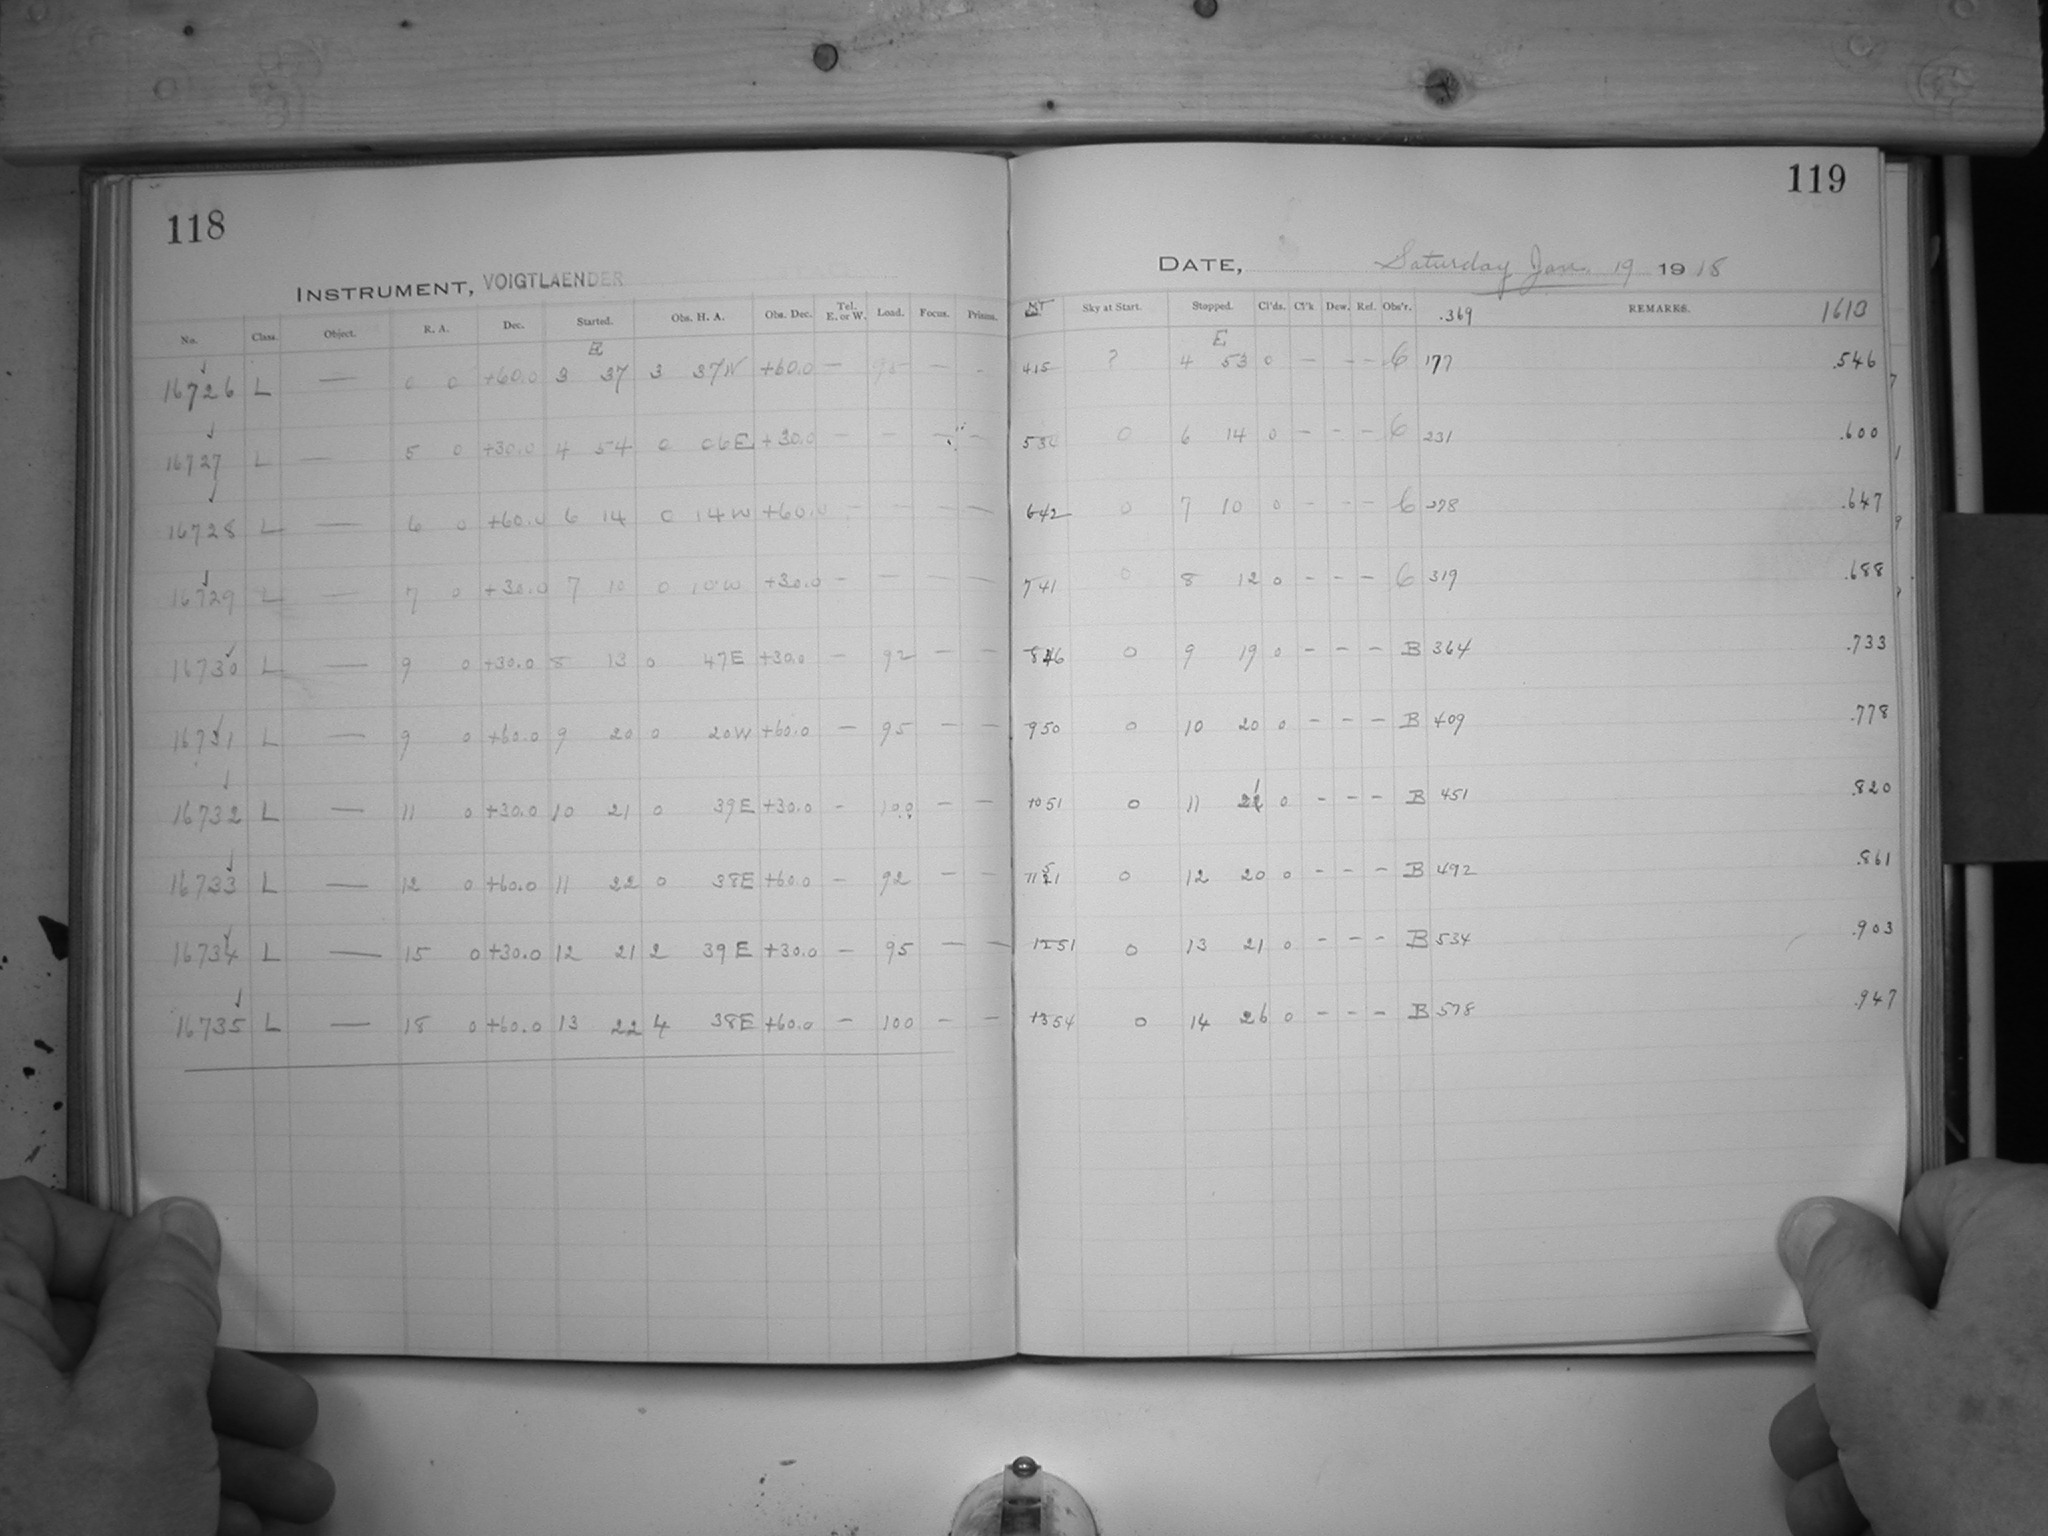 118
INSTRUMENT, VOIGTLAENDER
No. Class. Object. R. A. Dec. Started. Obs. H. A. Obs. Dec. Tel. E. or W. Load. Focus. Prisms.
E
16726 L — 0 0 +60.0 3 37 3 37W +60.0 — 95 — -
16727 L — 5 0 +30.0 4 54 0 06E +30.0 — — — —
16728 L — 6 0 +60.0 6 14 0 14W +60.0 - - - —
16729 L — 7 0 +30.0 7 10 0 10W +30.0 - — — —
16730 L — 9 0 +30.0 8 13 0 47E +30.0 - 92 — —
16731 L — 9 0 +60.0 9 20 0 20W +60.0 — 95 — —
16732 L — 11 0 +30.0 10 21 0 39E +30.0 - 100 — —
16733 L — 12 0 +60.0 11 22 0 38E +60.0 - 92 — —
16734 L — 15 0 +30.0 12 21 2 39E +30.0 — 95 — —
16735 L — 18 0 +60.0 13 22 4 38E +60.0 — 100 — —
119
DATE, Saturday Jan. 19 1918
Sky at Start. Stopped. Cl'ds. Cl'k Dew. Ref. Obs'r. .369 REMARKS. 1613
E
415 ? 4 53 0 — - - 6 177 .546
0 6 14 0 - - - 6 231 .600
642 0 7 10 0 - - - 6 278 .647
741 0 8 12 0 - - - 6 319 .688
846 0 9 19 0 - - - B 364 .733
950 0 10 20 0 - - - B 409 .778
1051 0 11 0 - - - B 451 .820
1151 0 12 20 0 - - - B 492 .861
1251 0 13 21 0 - - - B 534 .903
1354 0 14 26 0 - - - B 578 .947